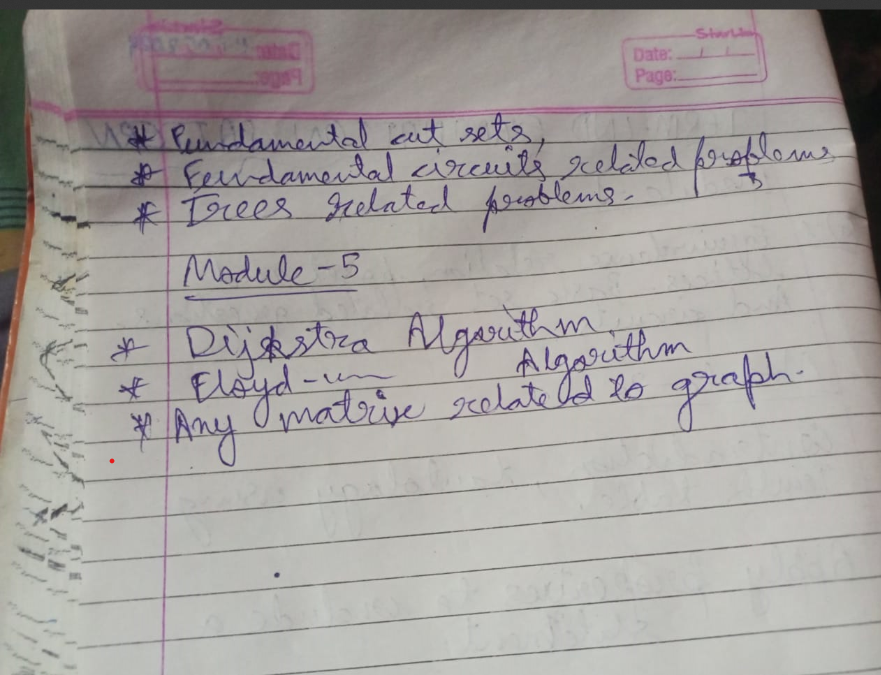 Starline
Date:
Page:
* Fundamental cut sets,
* Fundamental circuits related problems
* Trees related problems.
Module-5
* Dijkstra Algorithm.
* Floyd- Algorithm
* Any matrix related to graph.